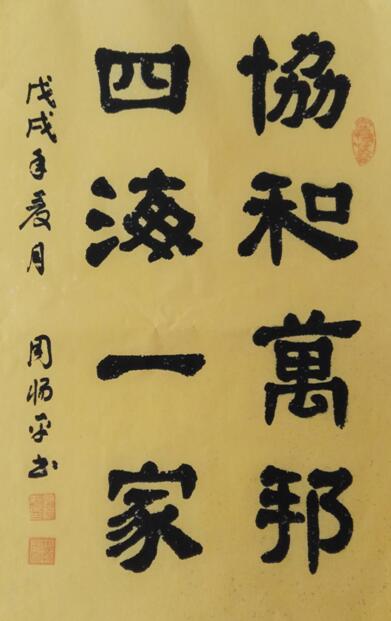 協和萬邦
四海一家
戊戌年夏月 周揚平书